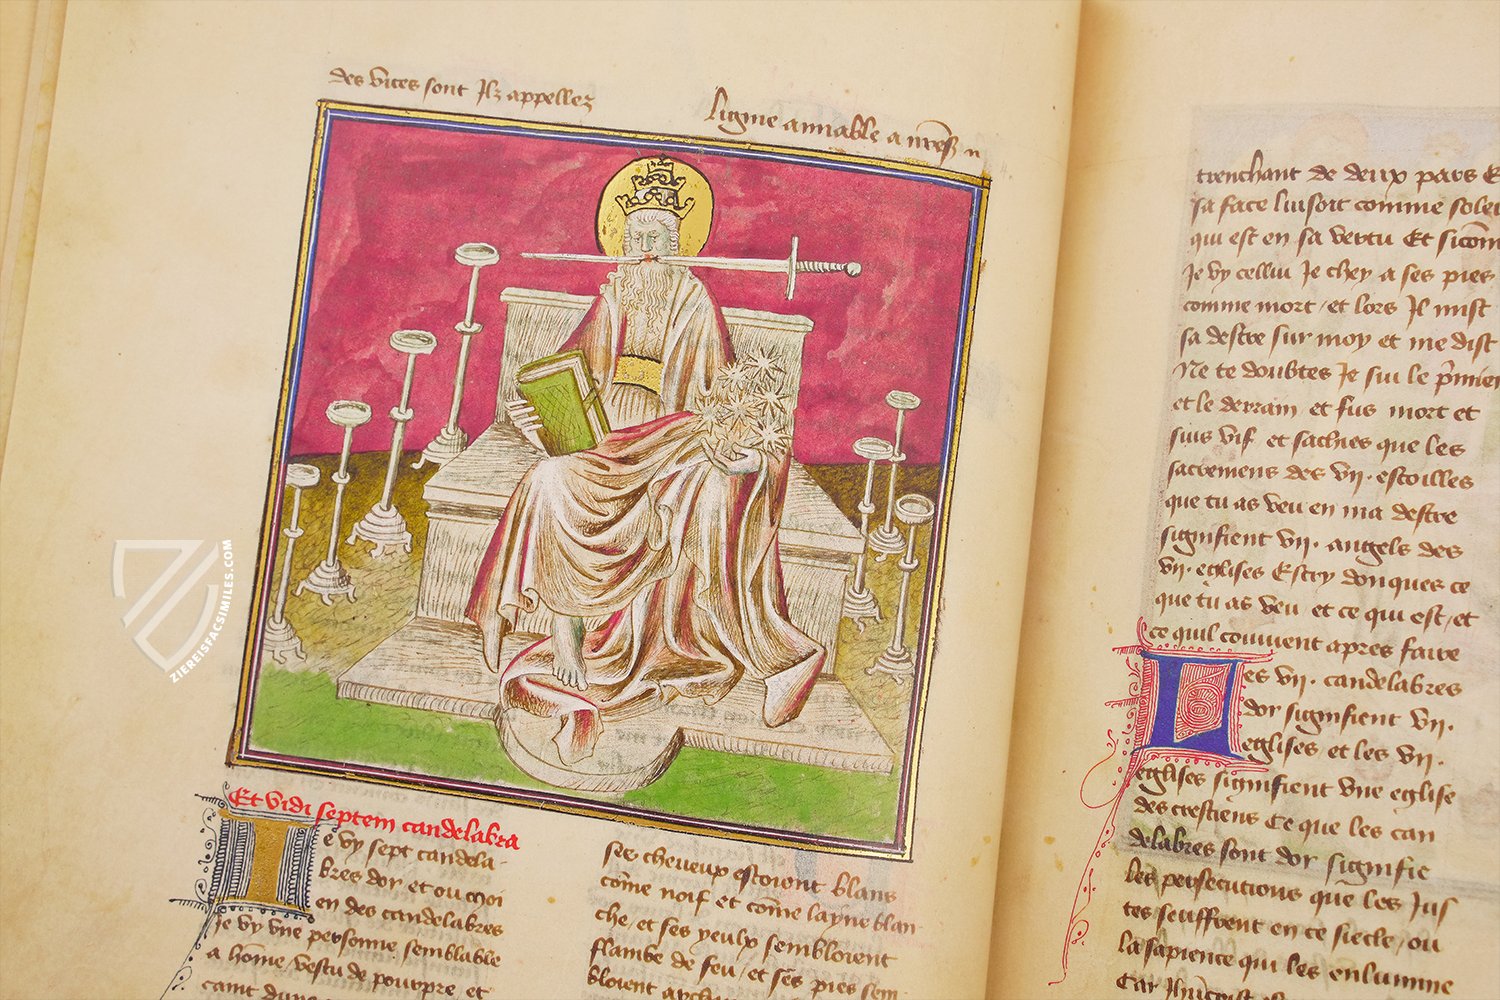 des vices sont Ilz appellez
ligne amiable a nres n
Et vidi septem candelabra
Ie vy sept candela-
bres dor et ou moi
en des candelabres
Je vy vne personne semblable
a hōme vestu de pourpre et
caint dune
ses cheueux estoient blans
cōme noif et cōme layne blan
che, et ses yeulx sembloient
flambe de feu, et ses pies sem
bloient
trenchant de deux pars E
sa face luisoit comme solei
qui est en sa vertu Et si com
Je vy cellui Je chey a ses pies
comme mort, et lors Il mist
sa destre sur moy et me dist
Ne te doubtes Je sui le p̄mier
et le derrain et fus mort et
suis vif et saches que les
sacremens des vij. estoilles
que tu as veu en ma destre
signifient vij. angels des
vij. eglises Escry donques ce
que tu as veu et ce qui est, et
ce quil conuient apres faire
Les vij. candelabres
dor signifient vij.
eglises, et les vij.
eglises signifient vne eglise
des crestiens Ce que les can
delabres sont dor signifie
les persecutions que les Jus
tes seuffrent en ce siecle, ou
la sapience qui les enlumine
Car
ZIEREISFACSIMILES.COM